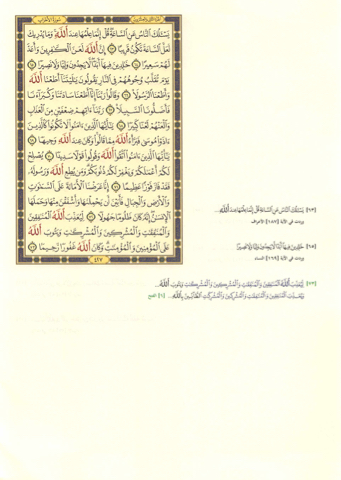 يَسْـَٔلُكَ ٱلنَّاسُ عَنِ ٱلسَّاعَةِ قُلْ إِنَّمَا عِلْمُهَا عِندَ ٱللَّهِ وَمَا يُدْرِيكَ
لَعَلَّ ٱلسَّاعَةَ تَكُونُ قَرِيبًا ٦٣ إِنَّ ٱللَّهَ لَعَنَ ٱلْكَٰفِرِينَ وَأَعَدَّ
لَهُمْ سَعِيرًا ٦٤ خَٰلِدِينَ فِيهَآ أَبَدًا لَّا يَجِدُونَ وَلِيًّا وَلَا نَصِيرًا ٦٥
يَوْمَ تُقَلَّبُ وُجُوهُهُمْ فِى ٱلنَّارِ يَقُولُونَ يَٰلَيْتَنَآ أَطَعْنَا ٱللَّهَ
وَأَطَعْنَا ٱلرَّسُولَا۠ ٦٦ وَقَالُوا۟ رَبَّنَآ إِنَّآ أَطَعْنَا سَادَتَنَا وَكُبَرَآءَنَا
فَأَضَلُّونَا ٱلسَّبِيلَا۠ ٦٧ رَبَّنَآ ءَاتِهِمْ ضِعْفَيْنِ مِنَ ٱلْعَذَابِ
وَٱلْعَنْهُمْ لَعْنًا كَبِيرًا ٦٨ يَٰٓأَيُّهَا ٱلَّذِينَ ءَامَنُوا۟ لَا تَكُونُوا۟ كَٱلَّذِينَ
ءَاذَوْا۟ مُوسَىٰ فَبَرَّأَهُ ٱللَّهُ مِمَّا قَالُوا۟ وَكَانَ عِندَ ٱللَّهِ وَجِيهًا ٦٩
يَٰٓأَيُّهَا ٱلَّذِينَ ءَامَنُوا۟ ٱتَّقُوا۟ ٱللَّهَ وَقُولُوا۟ قَوْلًا سَدِيدًا ٧٠ يُصْلِحْ
لَكُمْ أَعْمَٰلَكُمْ وَيَغْفِرْ لَكُمْ ذُنُوبَكُمْ وَمَن يُطِعِ ٱللَّهَ وَرَسُولَهُۥ
فَقَدْ فَازَ فَوْزًا عَظِيمًا ٧١ إِنَّا عَرَضْنَا ٱلْأَمَانَةَ عَلَى ٱلسَّمَٰوَٰتِ
وَٱلْأَرْضِ وَٱلْجِبَالِ فَأَبَيْنَ أَن يَحْمِلْنَهَا وَأَشْفَقْنَ مِنْهَا وَحَمَلَهَا
ٱلْإِنسَٰنُ إِنَّهُۥ كَانَ ظَلُومًا جَهُولًا ٧٢ لِّيُعَذِّبَ ٱللَّهُ ٱلْمُنَٰفِقِينَ
وَٱلْمُنَٰفِقَٰتِ وَٱلْمُشْرِكِينَ وَٱلْمُشْرِكَٰتِ وَيَتُوبَ ٱللَّهُ
عَلَى ٱلْمُؤْمِنِينَ وَٱلْمُؤْمِنَٰتِ وَكَانَ ٱللَّهُ غَفُورًا رَّحِيمًا ٧٣
٤٢٧
[٦٣] يَسْـَٔلُكَ ٱلنَّاسُ عَنِ ٱلسَّاعَةِ قُلْ إِنَّمَا عِلْمُهَا عِندَ ٱللَّهِ...
وردت في الآية [١٨٧] الأعراف
[٦٥] خَٰلِدِينَ فِيهَآ أَبَدًا لَّا يَجِدُونَ وَلِيًّا وَلَا نَصِيرًا
وردت في الآية [١٦٩] النساء
[٧٣] لِّيُعَذِّبَ ٱللَّهُ ٱلْمُنَٰفِقِينَ وَٱلْمُنَٰفِقَٰتِ وَٱلْمُشْرِكِينَ وَٱلْمُشْرِكَٰتِ وَيَتُوبَ ٱللَّهُ...
وَيُعَذِّبَ ٱلْمُنَٰفِقِينَ وَٱلْمُنَٰفِقَٰتِ وَٱلْمُشْرِكِينَ وَٱلْمُشْرِكَٰتِ ٱلظَّآنِّينَ بِٱللَّهِ... [٦] الفتح